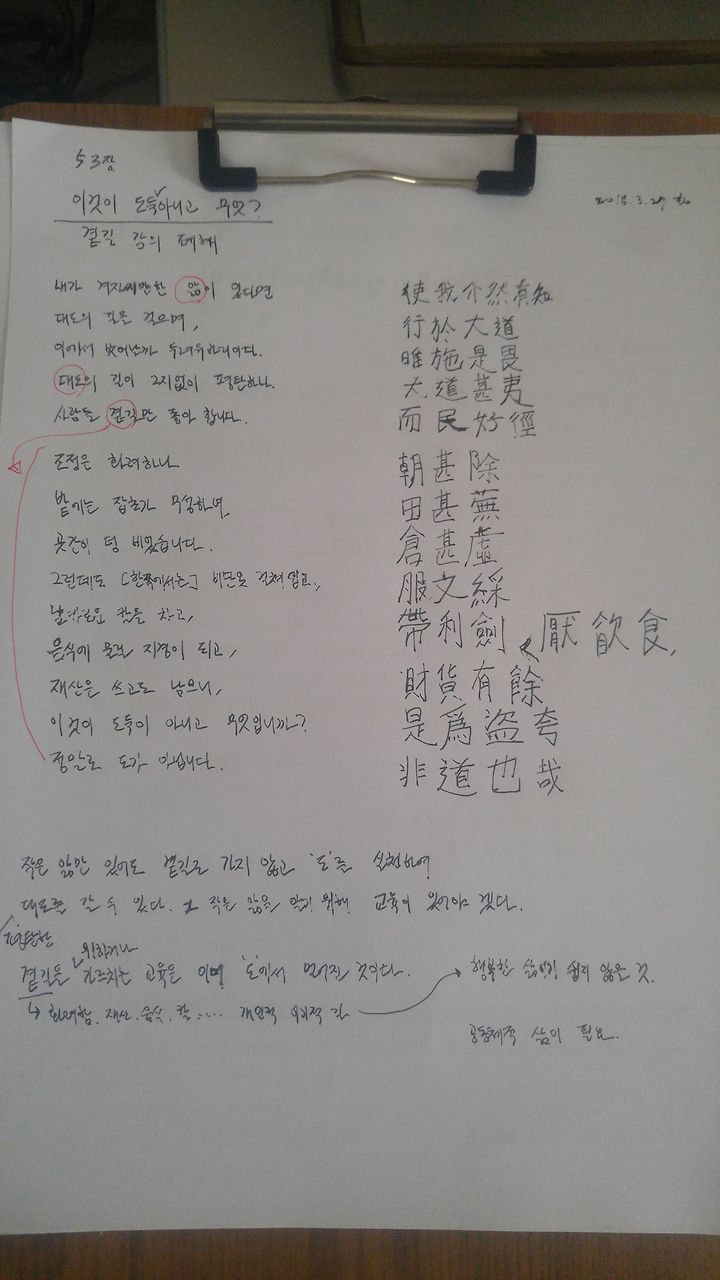 53장
이것이 도둑아니고 무엇?
곁길 감의 폐해
내가 겨자씨만한 앎이 있다면
대도의 길을 걸으며,
이에서 벗어날까 두려워하리이다.
대도의 길이 그지없이 평탄하나
사람들 곁길만 좋아 합니다.
조정은 화려하나
밭에는 잡초가 무성하며
곳간이 텅 비었습니다.
그런데도 [한쪽에서는] 비단옷 걸쳐입고,
날카로운 칼을 차고,
음식에 물릴 지경이 되고,
재산은 쓰고도 남으니,
이것이 도둑이 아니고 무엇입니까?
정말로 도가 아닙니다.
使我介然有知
行於大道
唯施是畏
大道甚夷
而民好徑
朝甚除
田甚蕪
倉甚虛
服文綵
帶利劍 厭飮食,
財貨有餘
是爲盜夸
非道也哉
작은 앎만 있어도 곁길로 가지 않고 '도'를 실천하여
대도를 갈 수 있다. 작은 앎을 알기 위해 교육이 있어야 겠다.
위하거나
곁길을 가르치는 교육은 이미 '도'에서 멀어진 것이다.
→ 화려함. 재산. 음식. 칼..... 개인적 길
행복한 삶 쉽지 않은 것.
공동체적 삶이 필요.